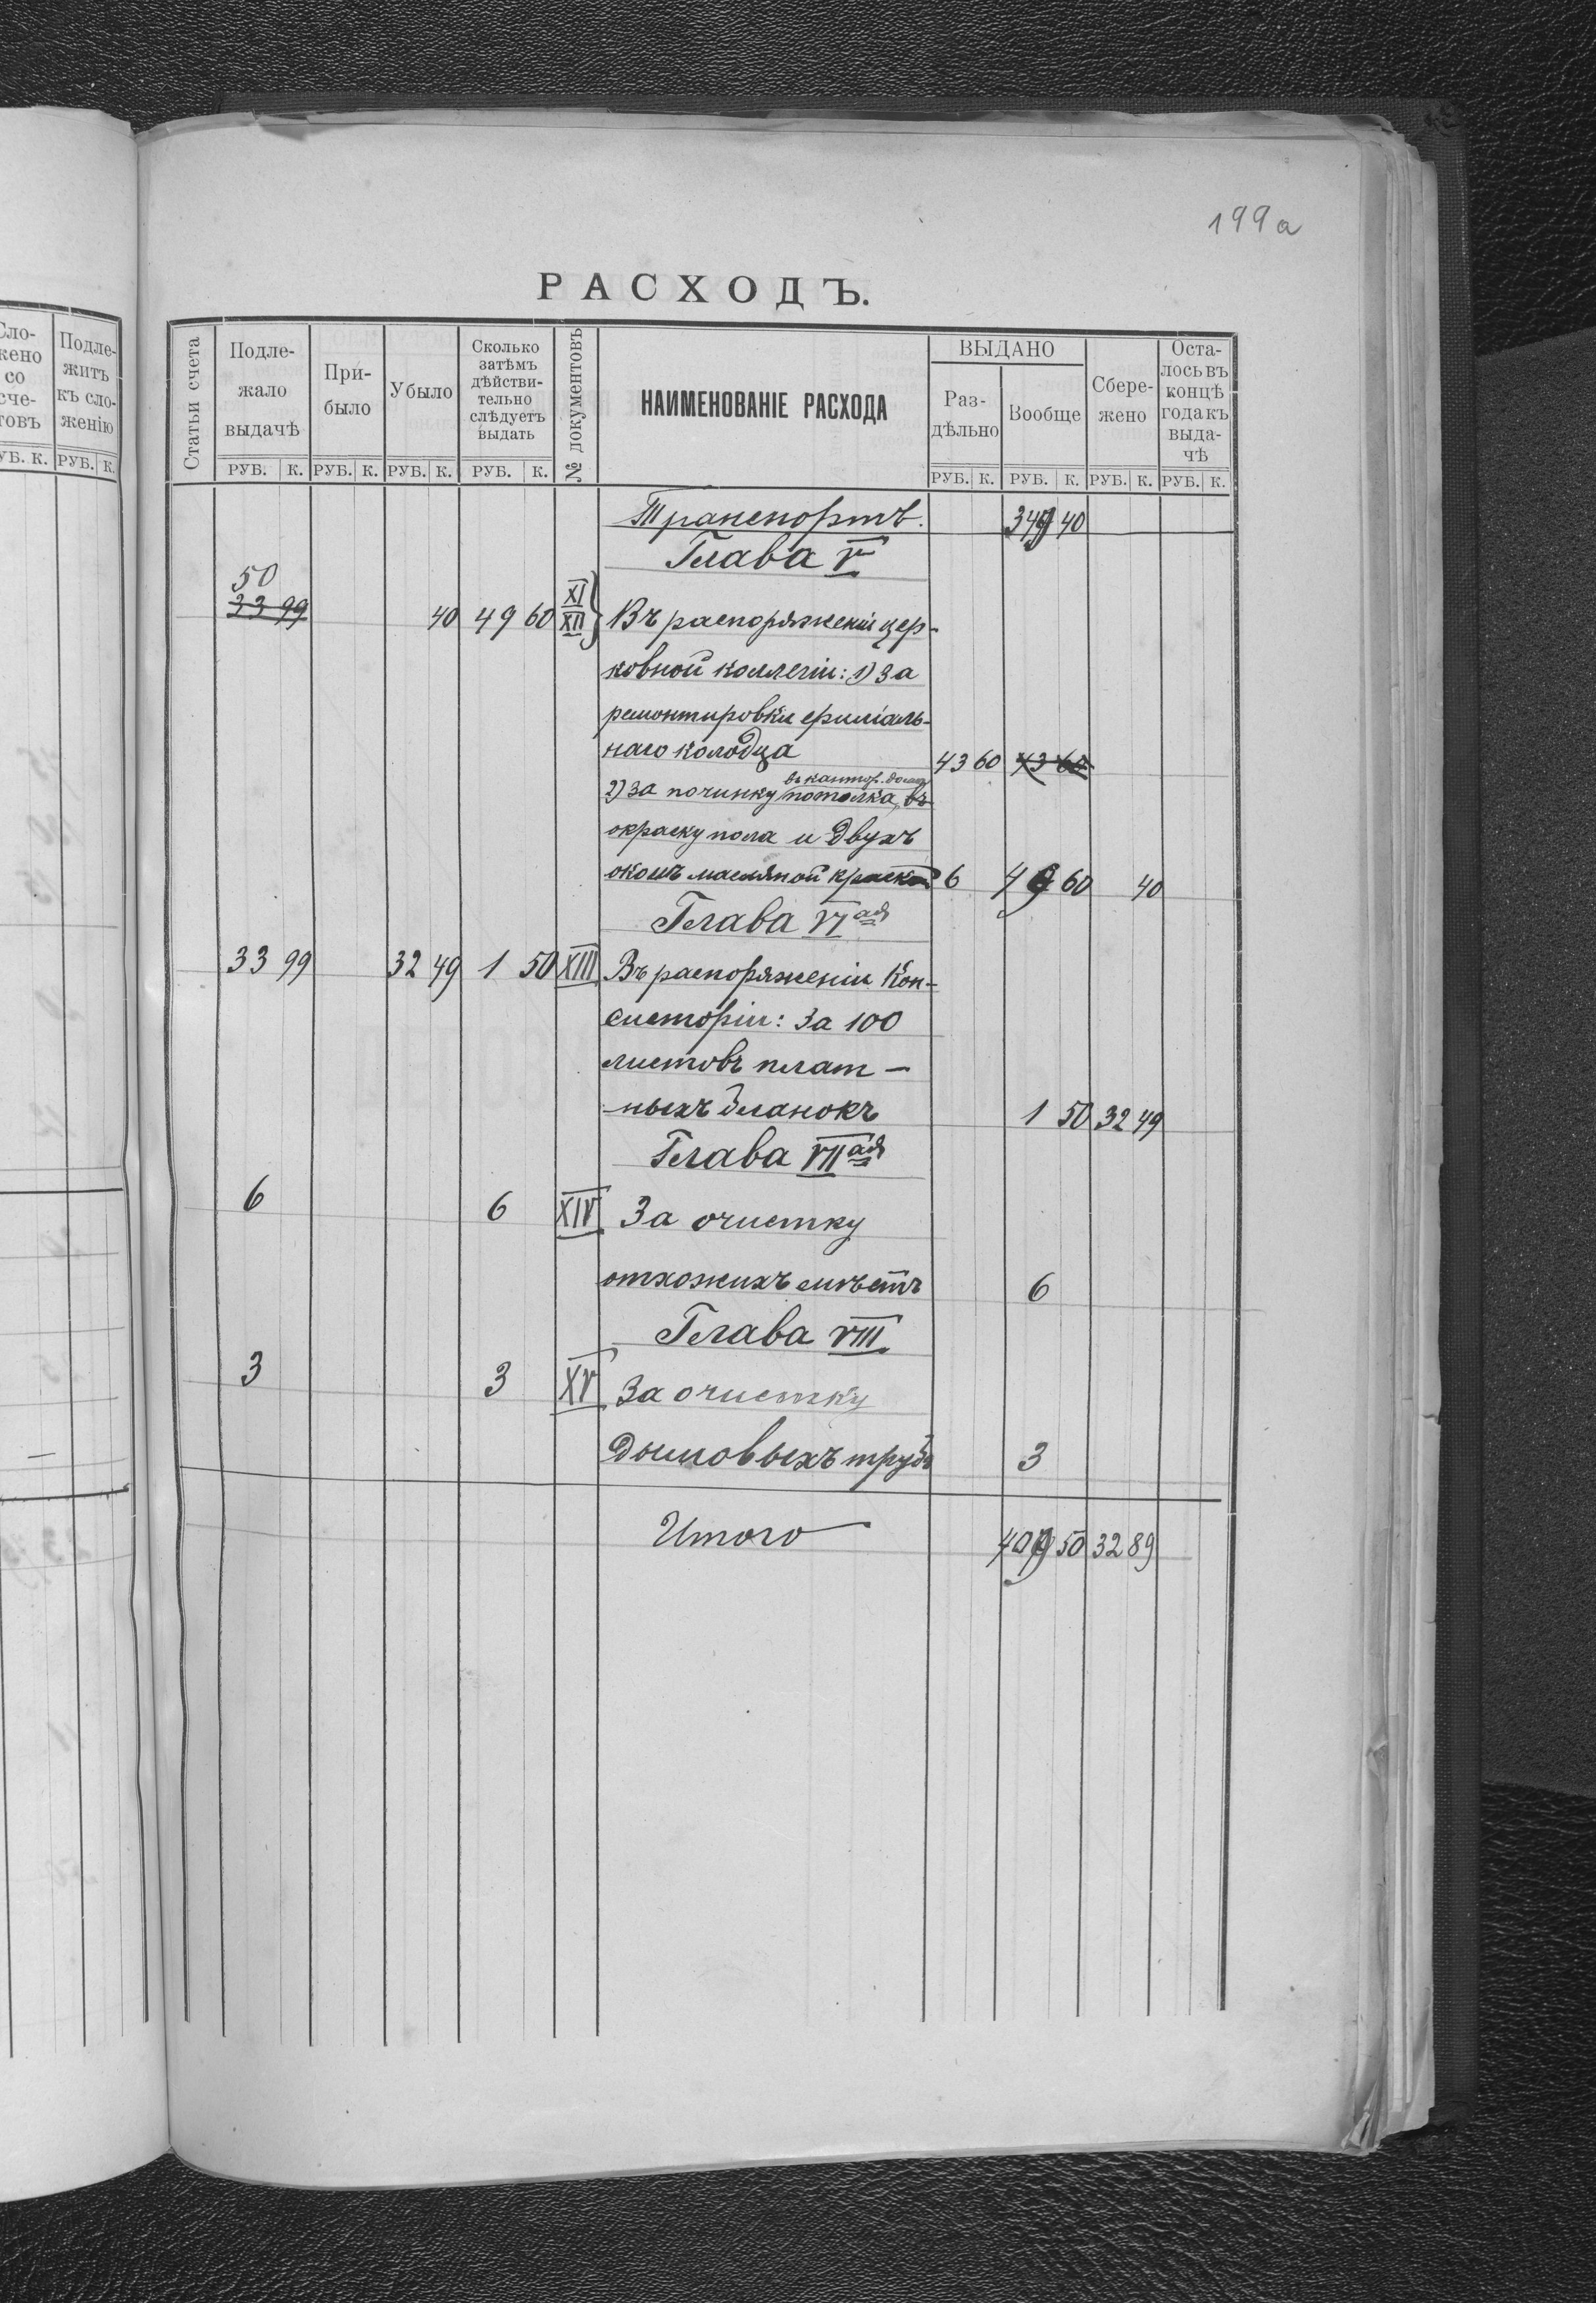 199а
РАСХОДЪ.
Сло-
жено
со
сче-
товъ
Подле-
житъ
къ сло-
женію
УБ. К. РУБ. К.
Статьи счета
Подле-
жало
выдачѣ
При-
было
Убыло
Сколько
затѣмъ
дѣйстви-
тельно
слѣдуетъ
выдать
№ документовъ
НАИМЕНОВАНІЕ РАСХОДА
ВЫДАНО
Раз-
дѣльно
Вообще
Сбере-
жено
Оста-
лось въ
концѣ
года къ
выда-
чѣ
РУБ. К. РУБ. К. РУБ. К. РУБ. К. РУБ. К. РУБ. К. РУБ. К. РУБ. К.
Транспортъ. 349 40
Глава V
50
33 99 40 49 60 XI XII Въ распоряженіи цер-
ковной коллегіи: 1) За
ремонтировки филіаль-
наго колодца 43 60 43 60
въ кантор. домѣ
2) За починку потолка, въ
окраску пола и двухъ
оконъ масляной краской 6 49 60 40
Глава VI ая
33 99 32 49 1 50 XIII Въ распоряженіи Кон-
систоріи: За 100
листовъ плат-
ныхъ бланокъ 1 50 32 49
Глава VII ая
6 6 XIV За очистку
отхожихъ мѣстъ 6
Глава VIII
3 3 XV За очистку
дымовыхъ трубъ 3
Итого 409 50 32 89